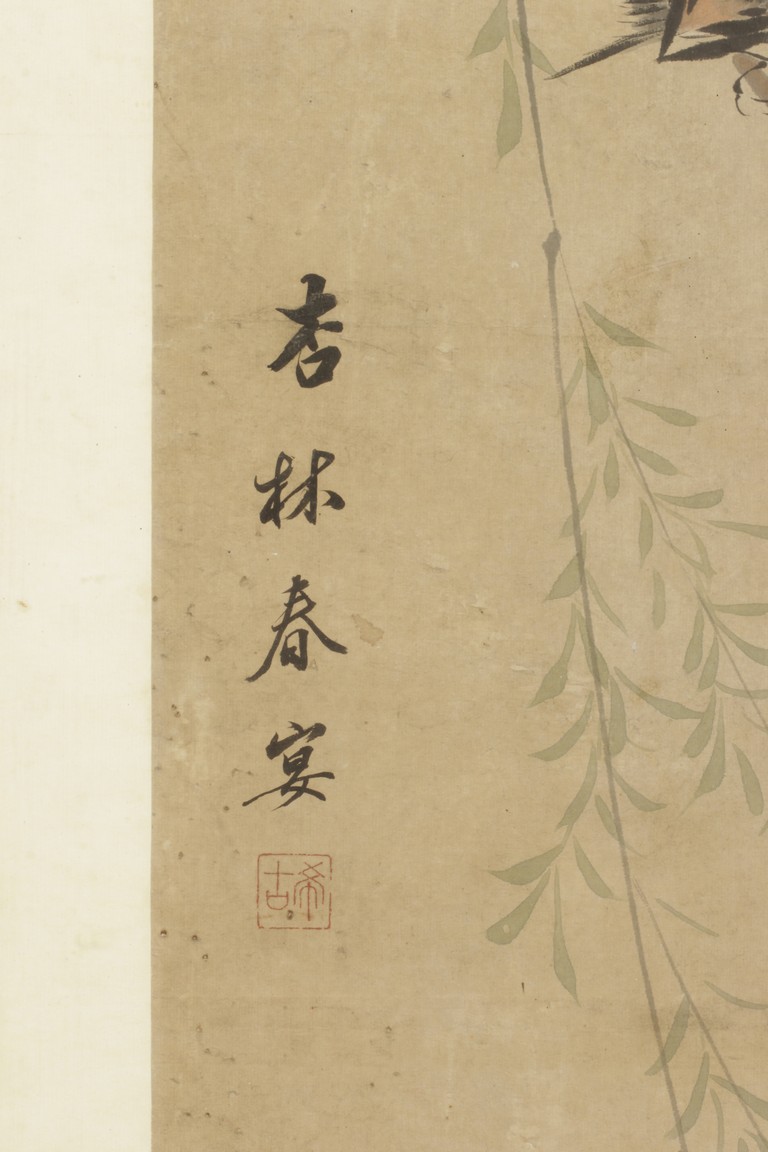 杏林春宴
希古